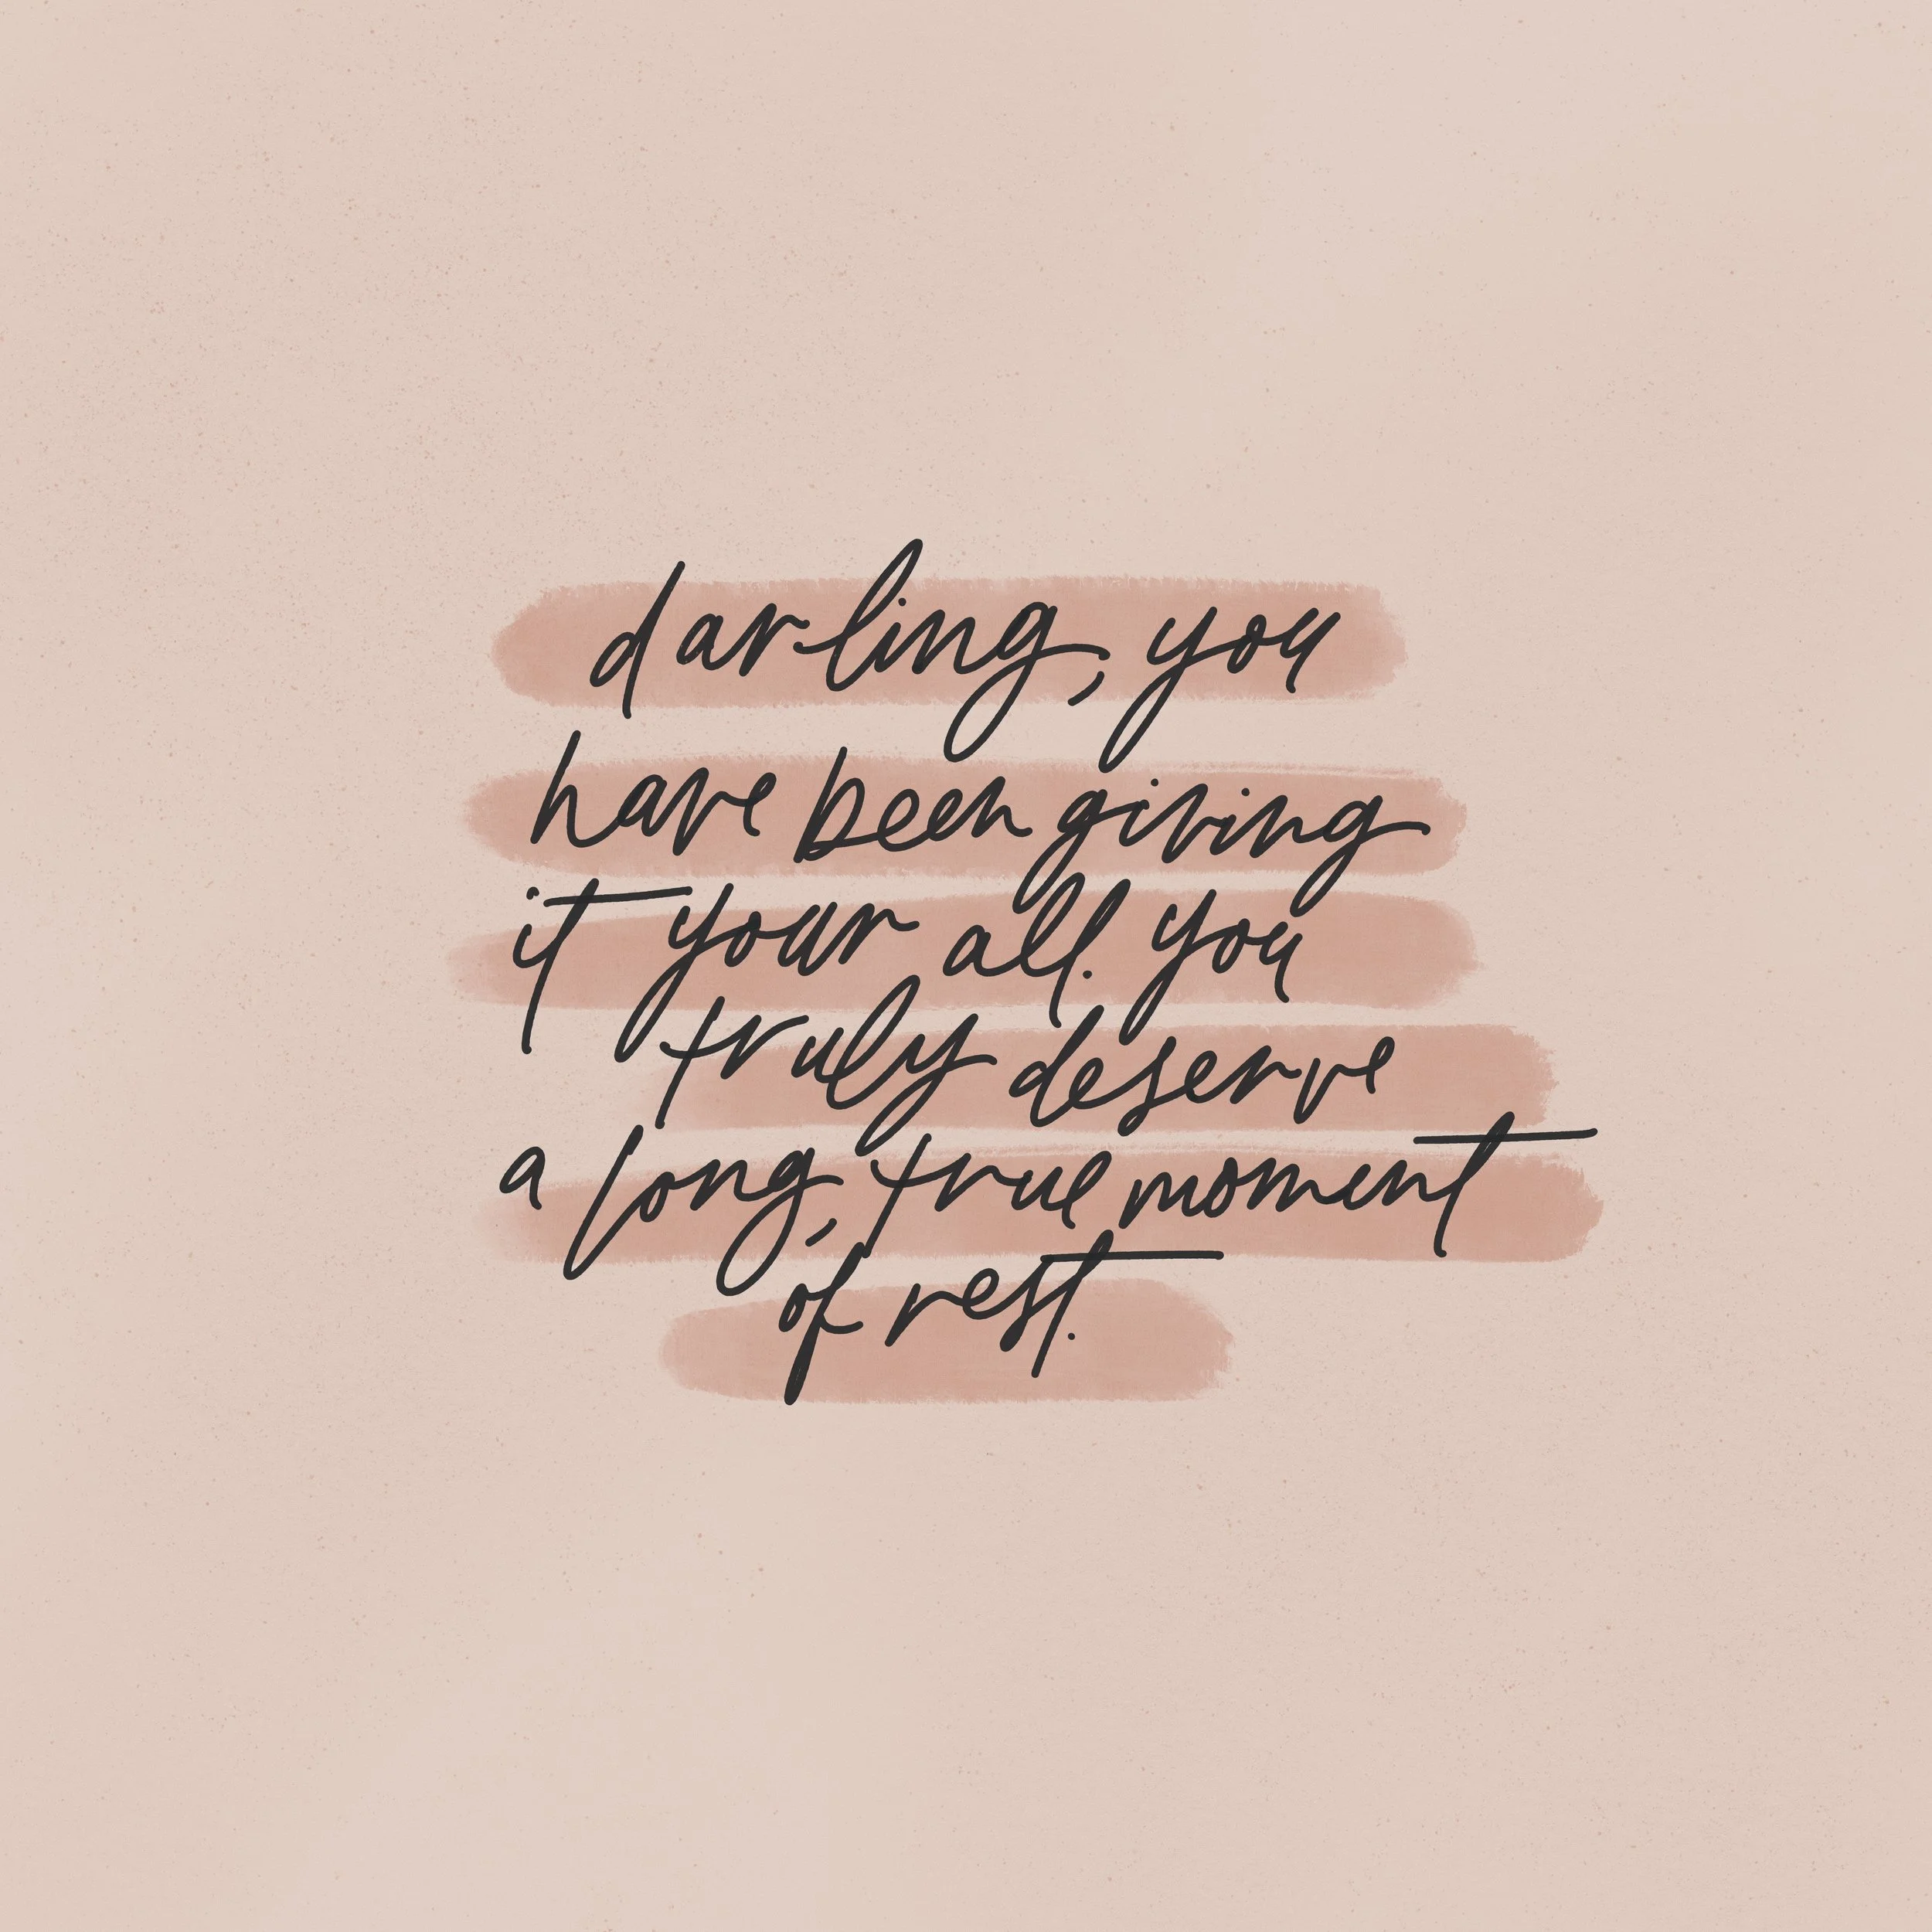 darling, you
have been giving
it your all. you
truly deserve
a long, true moment
of rest.